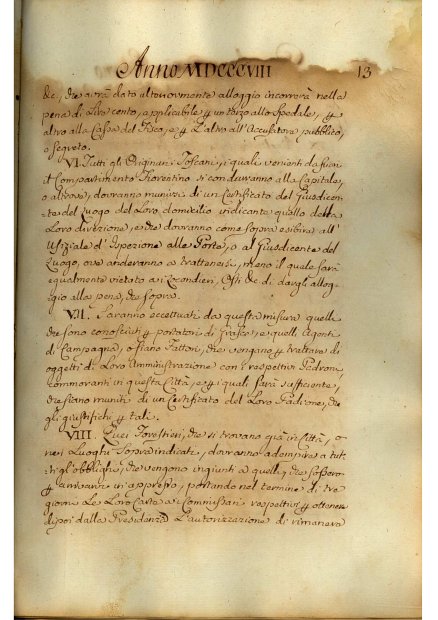 Anno MDCCCVIII 13
&c, che avrà dato altrimenti alloggio incorrerà nella
pena di Lire cento, applicabile p un terzo allo Spedale, p
altro alla Cassa del Fisco, e p L'altro all'Accusatore pubblico,
o segreto.
VI. Tutti gli Originarj Toscani, i quali venienti da fuori
il Compartimento Fiorentino si condurranno alla Capitale,
o altrove, dovranno munirsi di un Certificato del Giusdicen-
te del Luogo del Loro domicilio indicante quello della
Loro direzione, e che dovranno come sopra esibire all'
Ufiziale d'Ispezione alle Porte, o al Giusdicente del
Luogo, ove anderanno a trattenersi, meno il quale sarà
egualmente vietato a i Locandieri, Osti &c di dargli allog-
gio alla pena, che sopra.
VII. Saranno eccettuati da questa misura quelli
che sono conosciuti p portatori di grasce, e quelli Agenti
di Campagna, o siano Fattori, che vengano p trattare di
oggetti di Loro Amministrazione con i respettivi Padroni
commoranti in questa Città, e p i quali sarà sufficiente,
che siano muniti di un Certificato del Loro Padrone, che
gli giustifichi p tali.
VIII. Quei Forestieri, che si trovano già in Città, o
nei Luoghi Sopraindicati, dovranno adempire a tut-
ti gli obblighi, che vengono ingiunti a quelli, che fossero
p arrivare in appresso, portando nel termine di tre
giorni Le Loro Carte a i Commissari respettivi p ottenere
dipoi dalla Presidenza L'autorizzazione di rimanere